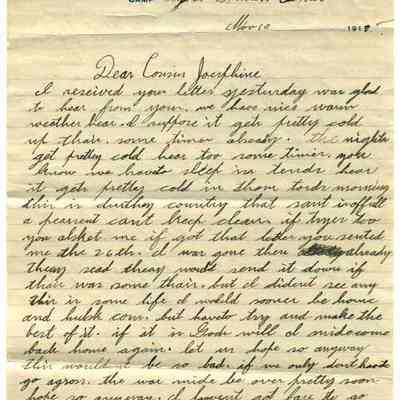 CAMP
Nov 10 191
Dear Cousin Joesphine
I received your letter yesterday was glad
to hear from your. we have nice warm
weather hear. I suppose it gets pretty cold
up thair some times already. the nights
get prettey cold hear too some times. you
know we haveto sleep in tends hear
it gets pretty cold in them tords morning
this is durthey country that sant
a pearent cant keep clean if tryes too
you asket me if got that letter you sented
me the 26th. I was gone then already
theay sead theay would send it down if
thair was some thair. but I diden't see any
this is some life I would sooner be home
and husk corn. but haveto try and make the
best of it. if it is Gods will I mide come
back home again. let us hope so anyway
this would it be so bad. if we only dont haveto
go agross. the war mide be over pretty soon
hope so anyway. I havent got